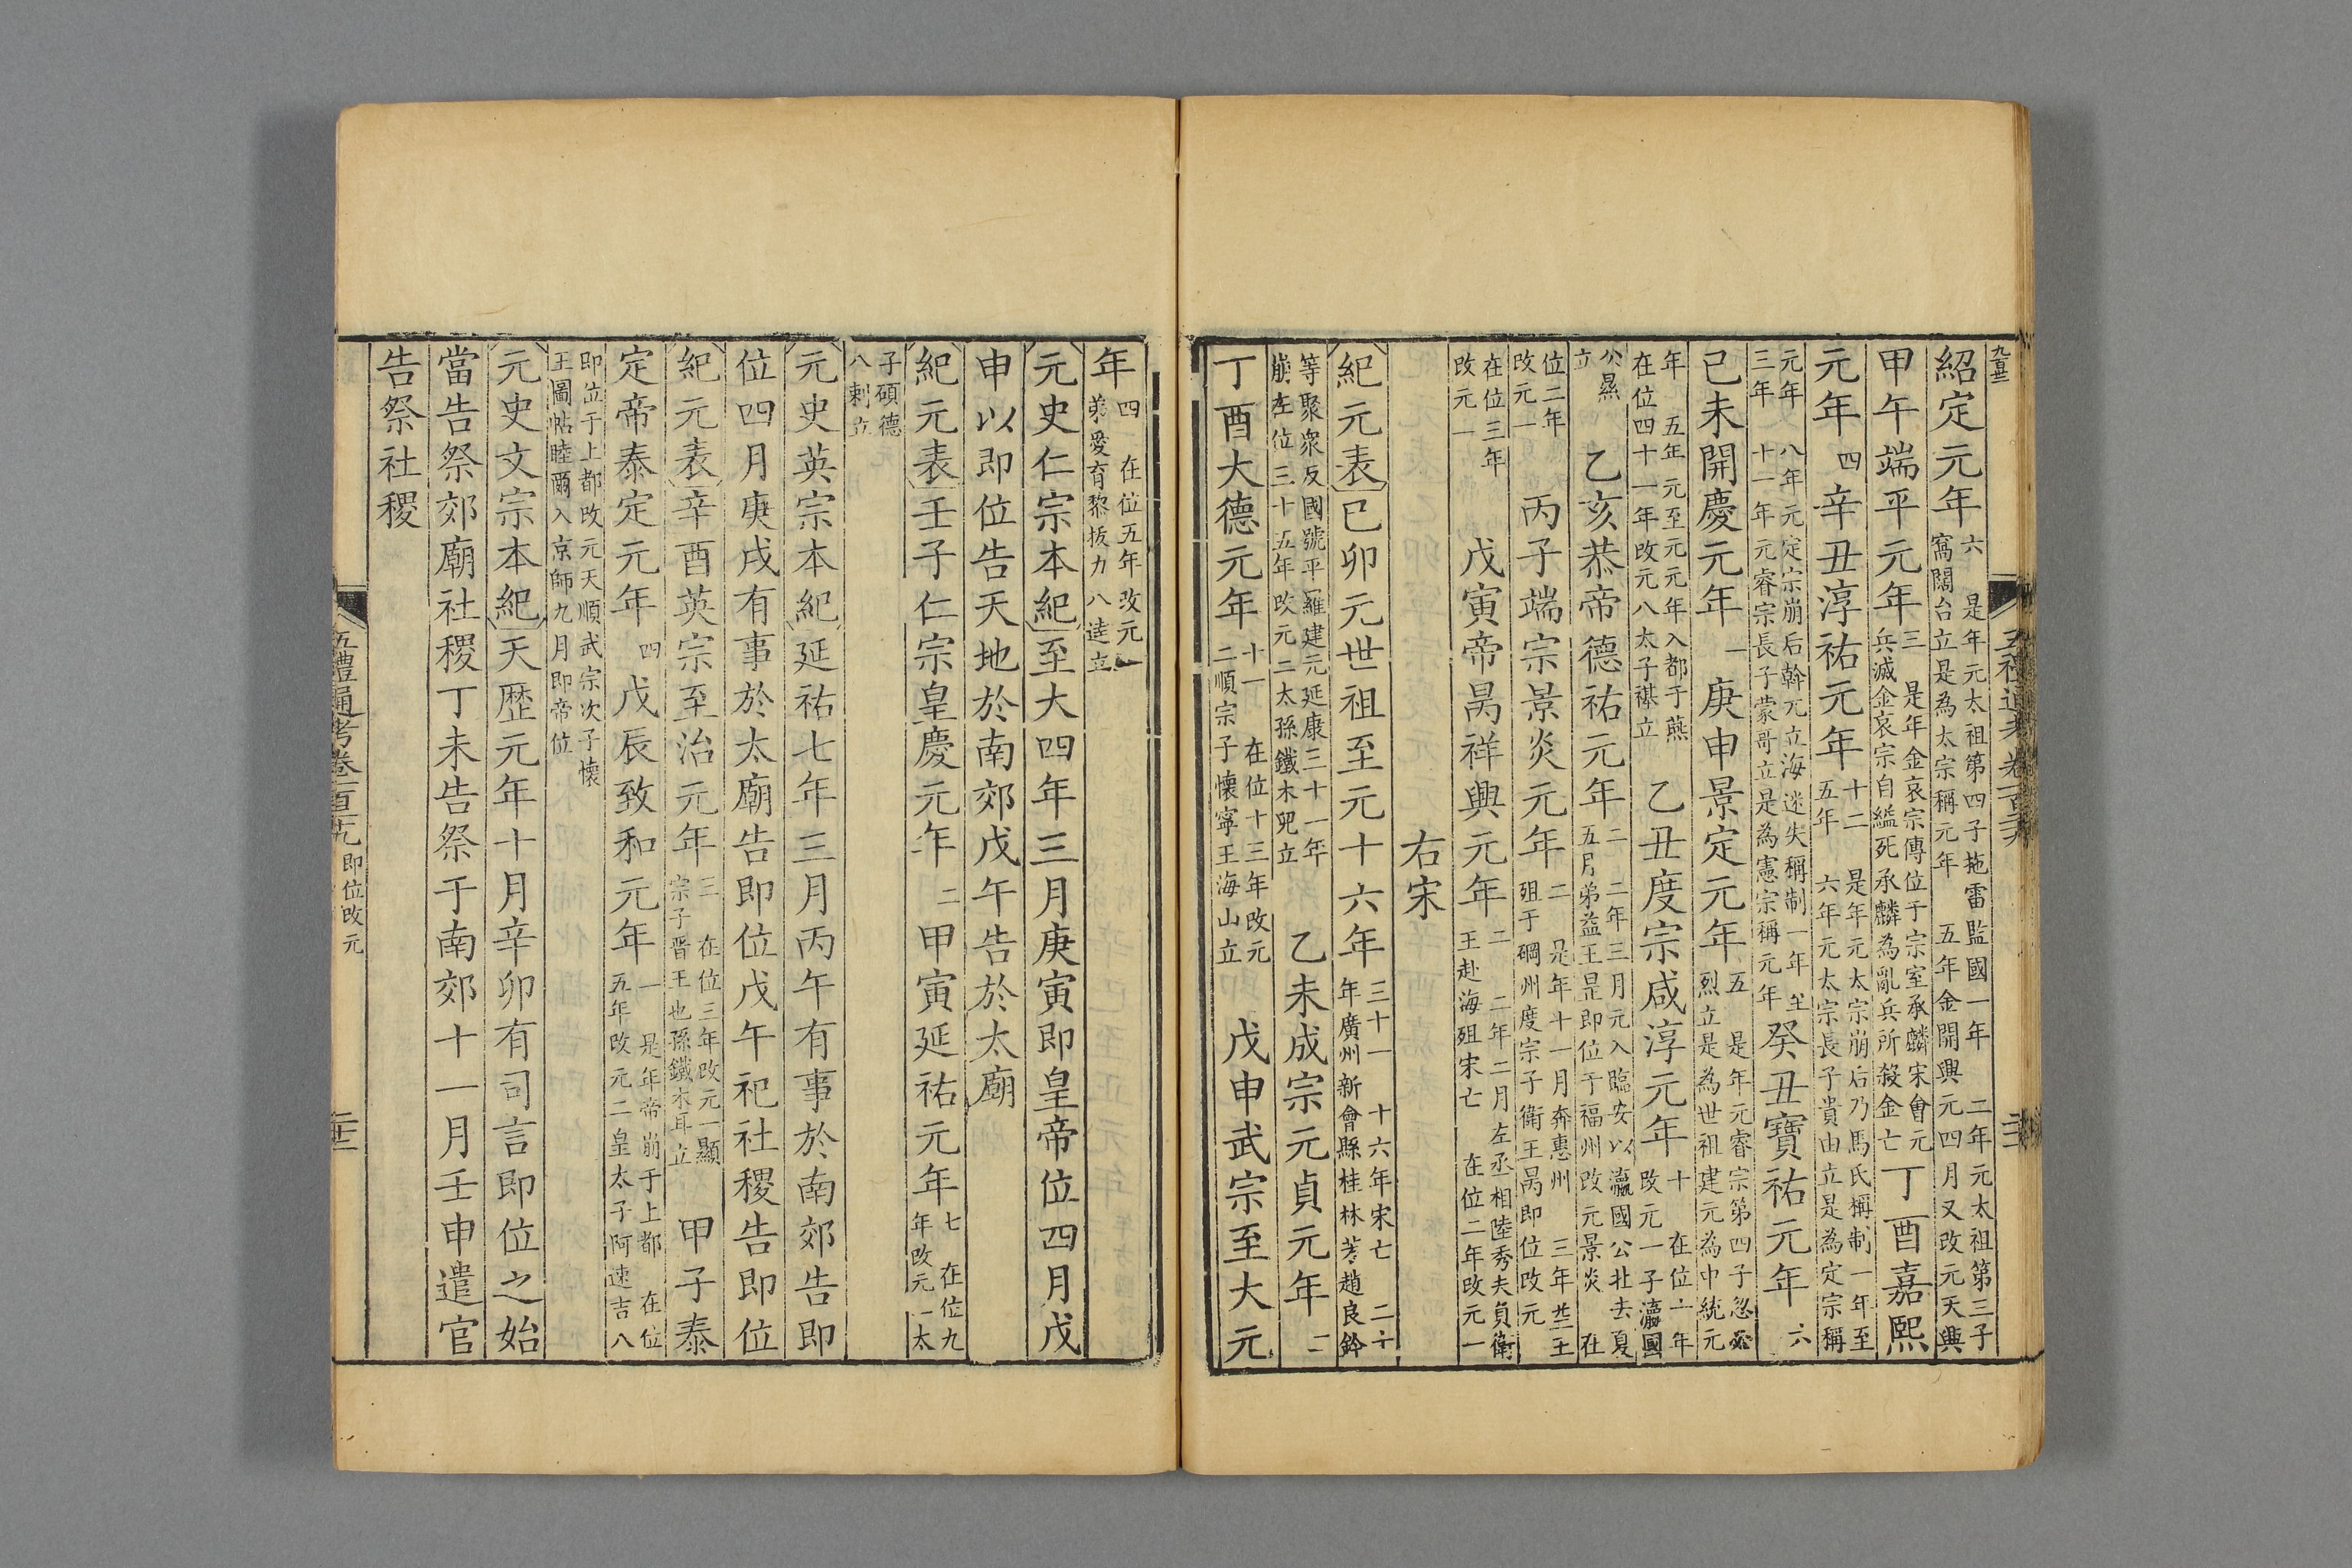 九三
五禮通考卷一百二十九
紹定元年六 是年元太祖第四子拖雷監國一年 二年元太祖第三子窩闊台立是為太宗稱元年 五年金開興元四月又改元天興
甲午端平元年三 是年金哀宗傳位于宗室承麟宋會元兵滅金哀宗自縊死承麟為亂兵所殺金亡丁酉嘉熙
元年四辛丑淳祐元年十二 是年元太宗崩后乃馬氏稱制一年至五年 六年元太宗長子貴由立是為定宗稱
元年 八年元定宗崩后斡兀立海迷失稱制一年至三年 十一年元睿宗長子蒙哥立是為憲宗稱元年癸丑寶祐元年六
己未開慶元年一庚申景定元年五 是年元睿宗第四子忽必烈立是為世祖建元為中統元
年 五年元至元元年入都于燕在位四十一年改元八太子禥立乙丑度宗咸淳元年十 在位十年改元一子瀛國
公㬎立乙亥恭帝德祐元年二 二年三月元入臨安以瀛國公北去夏五月弟益王昰即位于福州改元景炎 在
位二年改元一丙子端宗景炎元年二 是年十一月奔惠州 三年王殂于碙州度宗子衛王昺即位改元
在位三年改元一戊寅帝昺祥興元年二 二年二月左丞相陸秀夫負衛王赴海殂宋亡 在位二年改元一
右宋
紀元表己卯元世祖至元十六年三十一 十六年宋亡 二十年廣州新會縣桂林芳趙良鈐
等聚衆反國號平羅建元延康三十一年崩在位三十五年改元二太孫鐵木兒立乙未成宗元貞元年二
丁酉大德元年十一 在位十三年改元二順宗子懷寧王海山立戊申武宗至大元
年四 在位五年改元一弟愛育黎拔力八達立
元史仁宗本紀至大四年三月庚寅即皇帝位四月戊
申以即位告天地於南郊戊午告於太廟
紀元表壬子仁宗皇慶元年二甲寅延祐元年七 在位九年改元一太
子碩德八剌立
元史英宗本紀延祐七年三月丙午有事於南郊告即
位四月庚戌有事於太廟告即位戊午祀社稷告即位
紀元表辛酉英宗至治元年三 在位三年改元一顯宗子晉王也孫鐵木耳立甲子泰
定帝泰定元年四戊辰致和元年一 是年帝崩于上都 在位五年改元二皇太子阿速吉八
即位于上都改元天順武宗次子懷王圖帖睦爾入京師九月即帝位
元史文宗本紀天歷元年十月辛卯有司言即位之始
當告祭郊廟社稷丁未告祭于南郊十一月壬申遣官
告祭社稷
五禮通考卷一百二十九 即位改元
二十三